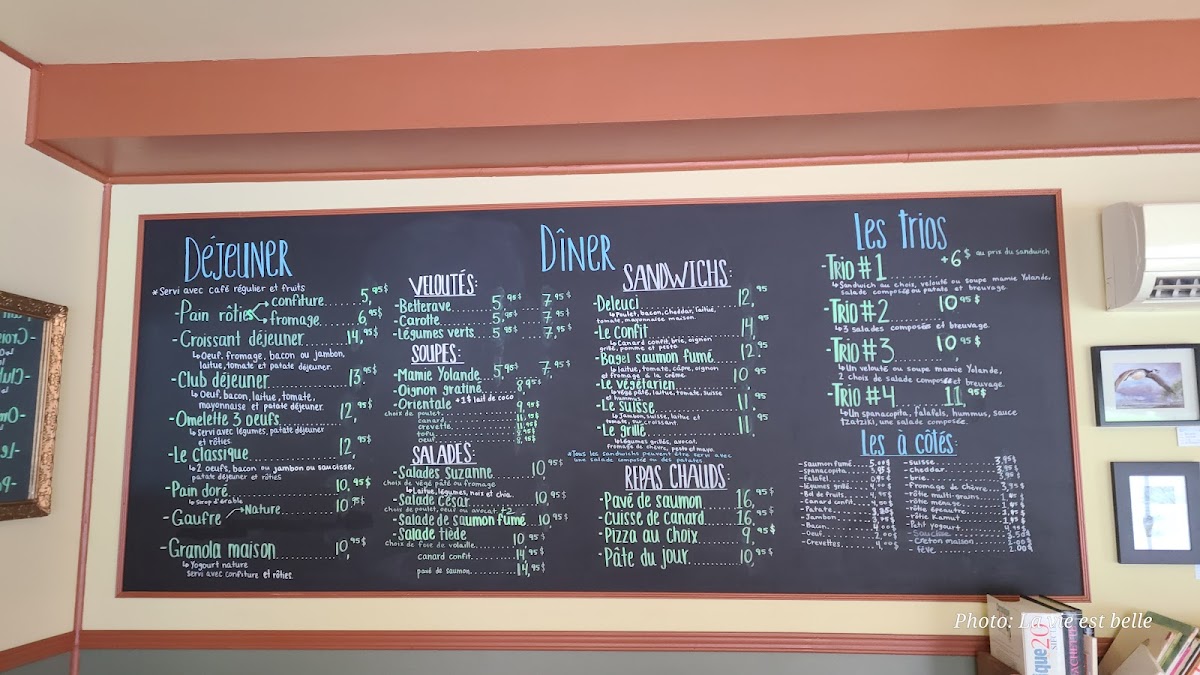 DÉJEUNER
*Servi avec café régulier et fruits
-Pain rôties confiture......5,95$
fromage......6,95$
-Croissant déjeuner......14,95$
↳Oeuf, fromage, bacon ou jambon,
laitue, tomate et patate déjeuner.
-Club déjeuner......13,95$
↳Oeuf, bacon, laitue, tomate,
mayonnaise et patate déjeuner.
-Omelette 3 oeufs......12,95$
↳Servi avec légumes, patate déjeuner
et rôties.
-Le Classique......12,95$
↳2 oeufs, bacon ou jambon ou saucisse,
patate déjeuner et rôties
-Pain doré......10,95$
↳Sirop d'érable
-Gaufre Nature......10,95$
-Granola maison......10,95$
↳Yogourt nature
servi avec confiture et rôties.
DÎNER
VELOUTÉS:
-Betterave......5,95$ 7,95$
-Carotte......5,95$ 7,95$
-Légumes verts...5,95$ 7,95$
SOUPES:
-Mamie Yolande...5,95$ 7,95$
-Oignon gratiné......8,95$
-Orientale +1$ lait de coco
choix de poulet......9,95$
canard
crevette
tofu
oeuf
SALADES:
-Salades Suzanne......10,95$
choix de végé pâté ou fromage
↳Laitue, légumes, noix et chia.
-Salade César......10,95$
choix de poulet, oeuf ou avocat +2
-Salade de saumon fumé...10,95$
-Salade tiède......10,95$
choix de foie de volaille
canard confit......14,95$
pavé de saumon......14,95$
SANDWICHS:
-Deleuci......12,95
↳Poulet, bacon, cheddar, laitue,
tomate, mayonnaise maison.
-Le Confit......14,95
↳Canard confit, brie, oignon
grillé, pomme et pesto
-Bagel saumon fumé...12,95
↳laitue, tomate, câpre, oignon
et fromage à la crème
-Le végétarien......10,95
↳Végé pâté, laitue, tomate, suisse
et hummus.
-Le suisse......11,95
↳Jambon, suisse, laitue et
tomate, sur croissant.
-Le grillé......11,95
↳Légumes grillés, avocat,
fromage de chèvre, pesto et mayo.
*Tous les sandwichs peuvent être servi avec
une salade composée ou des patates
REPAS CHAUDS
-Pavé de saumon......16,95$
-Cuisse de canard......16,95$
-Pizza au choix......9,95$
-Pâte du jour......10,95$
Les trios
-TRIO #1......+6$ au prix du sandwich
↳Sandwich au choix, velouté ou soupe mamie Yolande,
salade composé ou patate et breuvage.
-TRIO #2 10,95$
↳3 salades composés et breuvage.
-TRIO #3 10,95$
↳Un velouté ou soupe mamie Yolande,
2 choix de salade composée et breuvage.
-TRIO #4......11,95$
↳Un spanacopita, falafels, hummus, sauce
tzatziki, une salade composée.
Les à côtés:
-Saumon fumé......5,00$
-spanacopita......5,95$
-falafel
-légumes grillé
-Bol de fruits
-Canard confit
-Patate
-Jambon
-Bacon
-Oeuf
-Crevettes......4,00$
-Suisse......3,95$
-cheddar......3,95$
-brie
-fromage de chèvre...3,95$
-rôtie multi-grains
-rôtie ménage
-rôtie épeautre
-rôtie Kamut
-Petit yogourt
-Saucisse......3.50$
-Creton maison......2.00$
-fève......2.00$
Photo: La vie est belle